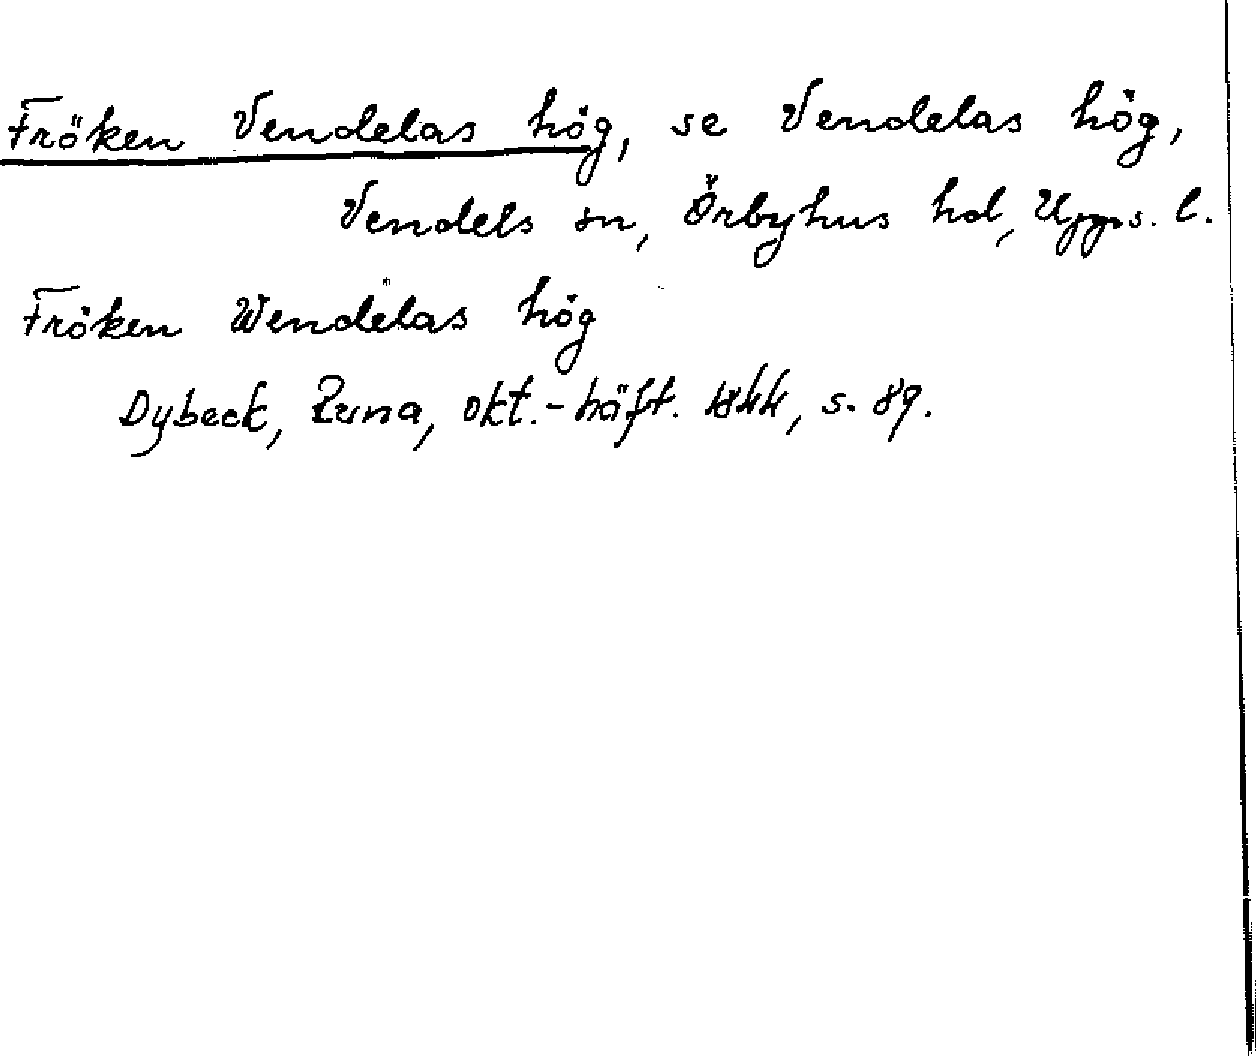 Fröken Vendelas hög, se Vendelas hög,
Vendels sn, Örbyhus hd, Upps. l.
Fröken Wendelas hög
Dybeck, Runa, okt.-häft. 1844, s. 89.